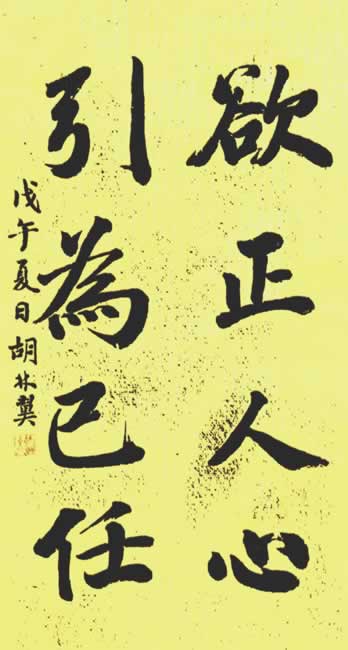 欲正人心
引為己任
戊午夏日胡林翼